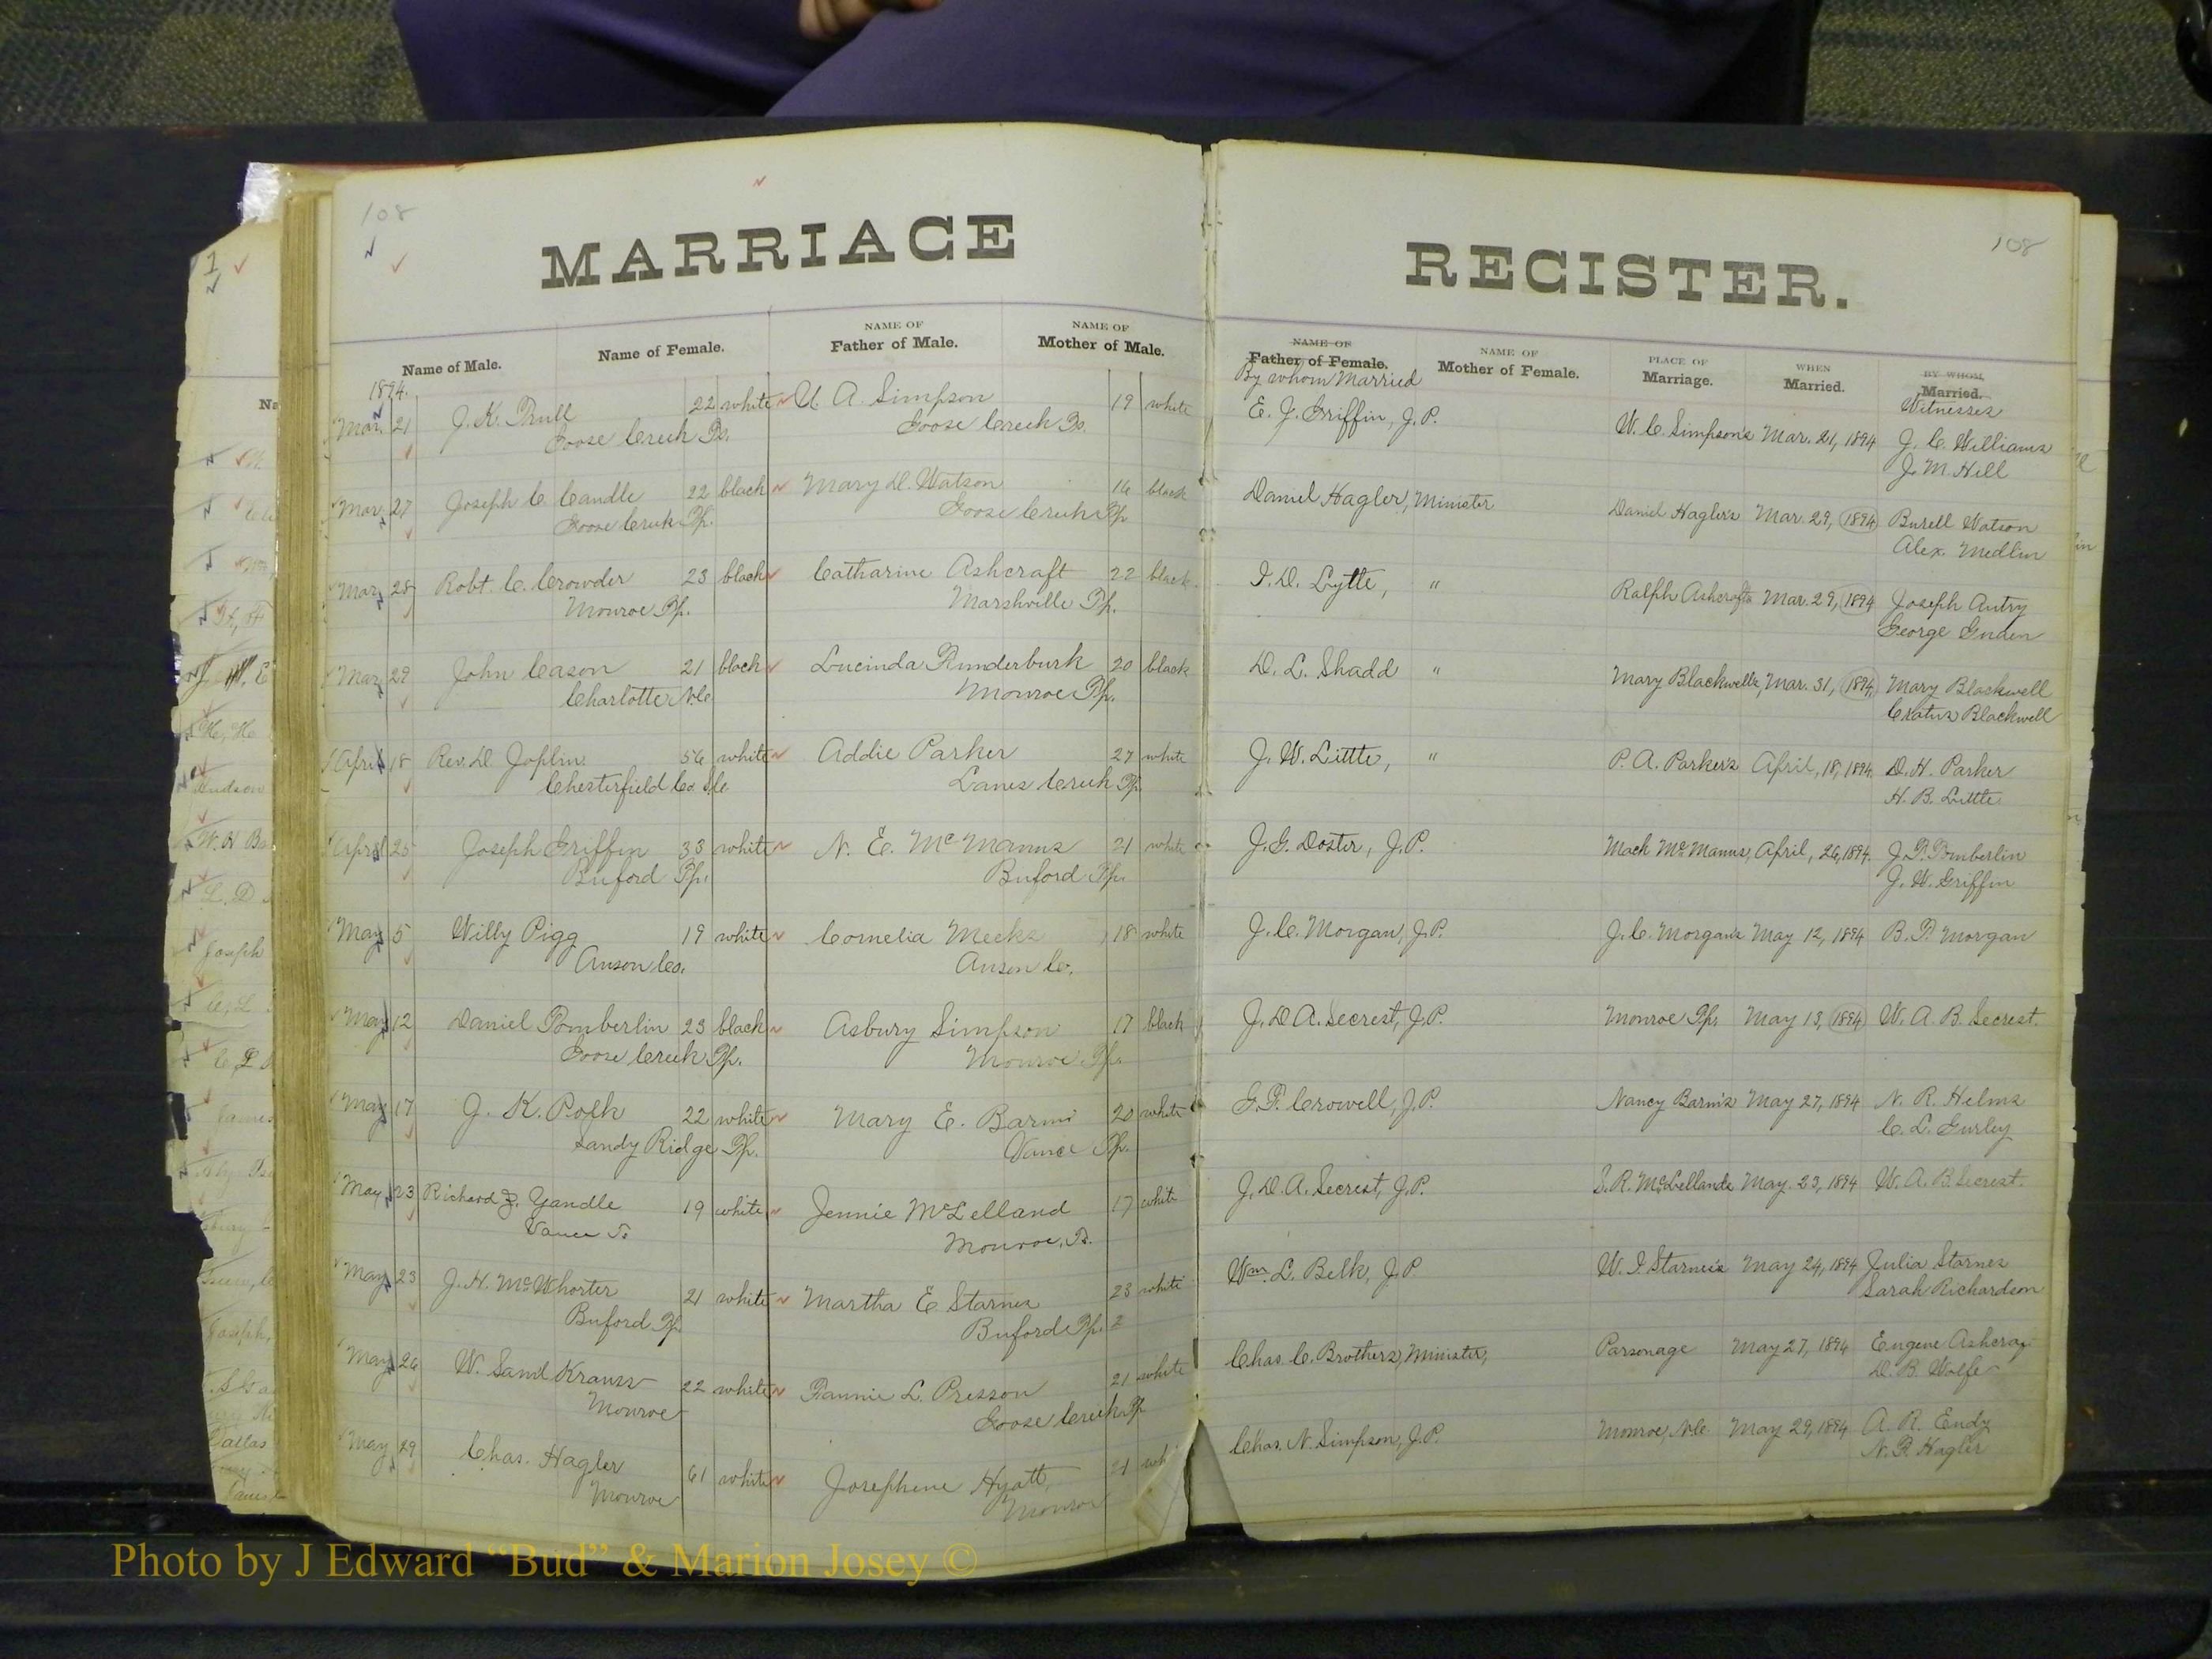 108
108
MARRIAGE REGISTER.
Name of Male.
Name of Female.
NAME OF
Father of Male.
NAME OF
Mother of Male.
NAME OF
Father of Female.
By whom Married
NAME OF
Mother of Female.
PLACE OF
Marriage.
WHEN
Married.
BY WHOM
Married.
Witnesses
1894.
Mar. 21 J. K. Trull 22 white U. A. Simpson 19 white E. J. Griffin, J.P. W. C. Simpson's Mar. 21, 1894 J. C. Williams
Goose Creek Ts. Goose Creek Ts. J. M. Hill
Mar. 27 Joseph C. Caudle 22 black Mary D. Watson 16 black Daniel Hagler, Minister Daniel Hagler's Mar. 29, 1894 Burell Watson
Goose Creek Tp. Goose Creek Tp Alex. Medlin
Mar. 28 Robt. C. Crowder 23 black Catharine Ashcraft 22 black I. D. Lytte, " Ralph Ashcraft's Mar. 29, 1894 Joseph Autry
Monroe Tp. Marshville Tp. George
Mar. 29 John Cason 21 black Lucinda Funderburk 20 black D. L. Shadd " Mary Blackwell's, Mar. 31, 1894, Mary Blackwell
Charlotte N.C. Monroe Tp. Cratus Blackwell
April 18 Rev. D. Joplin. 56 white Addie Parker 27 white J. W. Little, " P. A. Parker's April, 18, 1894. D. H. Parker
Chesterfield Co. S.C. Lanes Creek Tp. H. B. Little
April 25 Joseph Griffin 33 white N. E. McManus 21 white J. G. Doster, J.P. Mack McManus, April, 26, 1894. J. T. Pomberlin
Buford Tp. Buford Tp. J. W. Griffin
May 5 Willy Pigg 19 white Cornelia Meeks 18 white J. C. Morgan, J.P. J. C. Morgan's May 12, 1894 B. F. Morgan
Anson Co. Anson Co.
May 12 Daniel Pomberlin 23 black Asbury Simpson 17 black J. D. A. Secrest, J.P. Monroe Tp. May 13, 1894 W. A. B. Secrest.
Goose Creek Tp. Monroe Tp.
May 17 J. K. Polk 22 white Mary E. 20 white G. F. Crowell, J.P. Nancy May 27, 1894 N. R. Helms
Sandy Ridge Tp. Vance Tp. C. L. Gurley
May 23 Richard Z. Yandle 19 white Jennie McLelland 17 white J. D. A. Secrest, J.P. S. R. McLellands May. 23, 1894 W. A. B. Secrest.
Vance Ts Monroe, Ts.
May 23 J. H. McWhorter 21 white Martha E Starnes 23 white Wm. L. Belk, J.P. W. I. Starnes's May 24, 1894 Julia Starnes
Buford Tp. Buford Tp. 2 Sarah Richardson
May 26 W. Saml Krauss 22 white Fannie L. Presson 21 white Chas. C. Brothers, Minister, Parsonage May 27, 1894 Eugene Ashcraf
Monroe Goose Creek Tp D. B. Wolfe
May 29 Chas. Hagler 61 white Josephene Hyatt, 21 wh Chas. N. Simpson, J.P. Monroe, N.C. May 29, 1894 A. R. Eudy
Monroe Monroe N. R. Hagler
Photo by J Edward “Bud” & Marion Josey ©